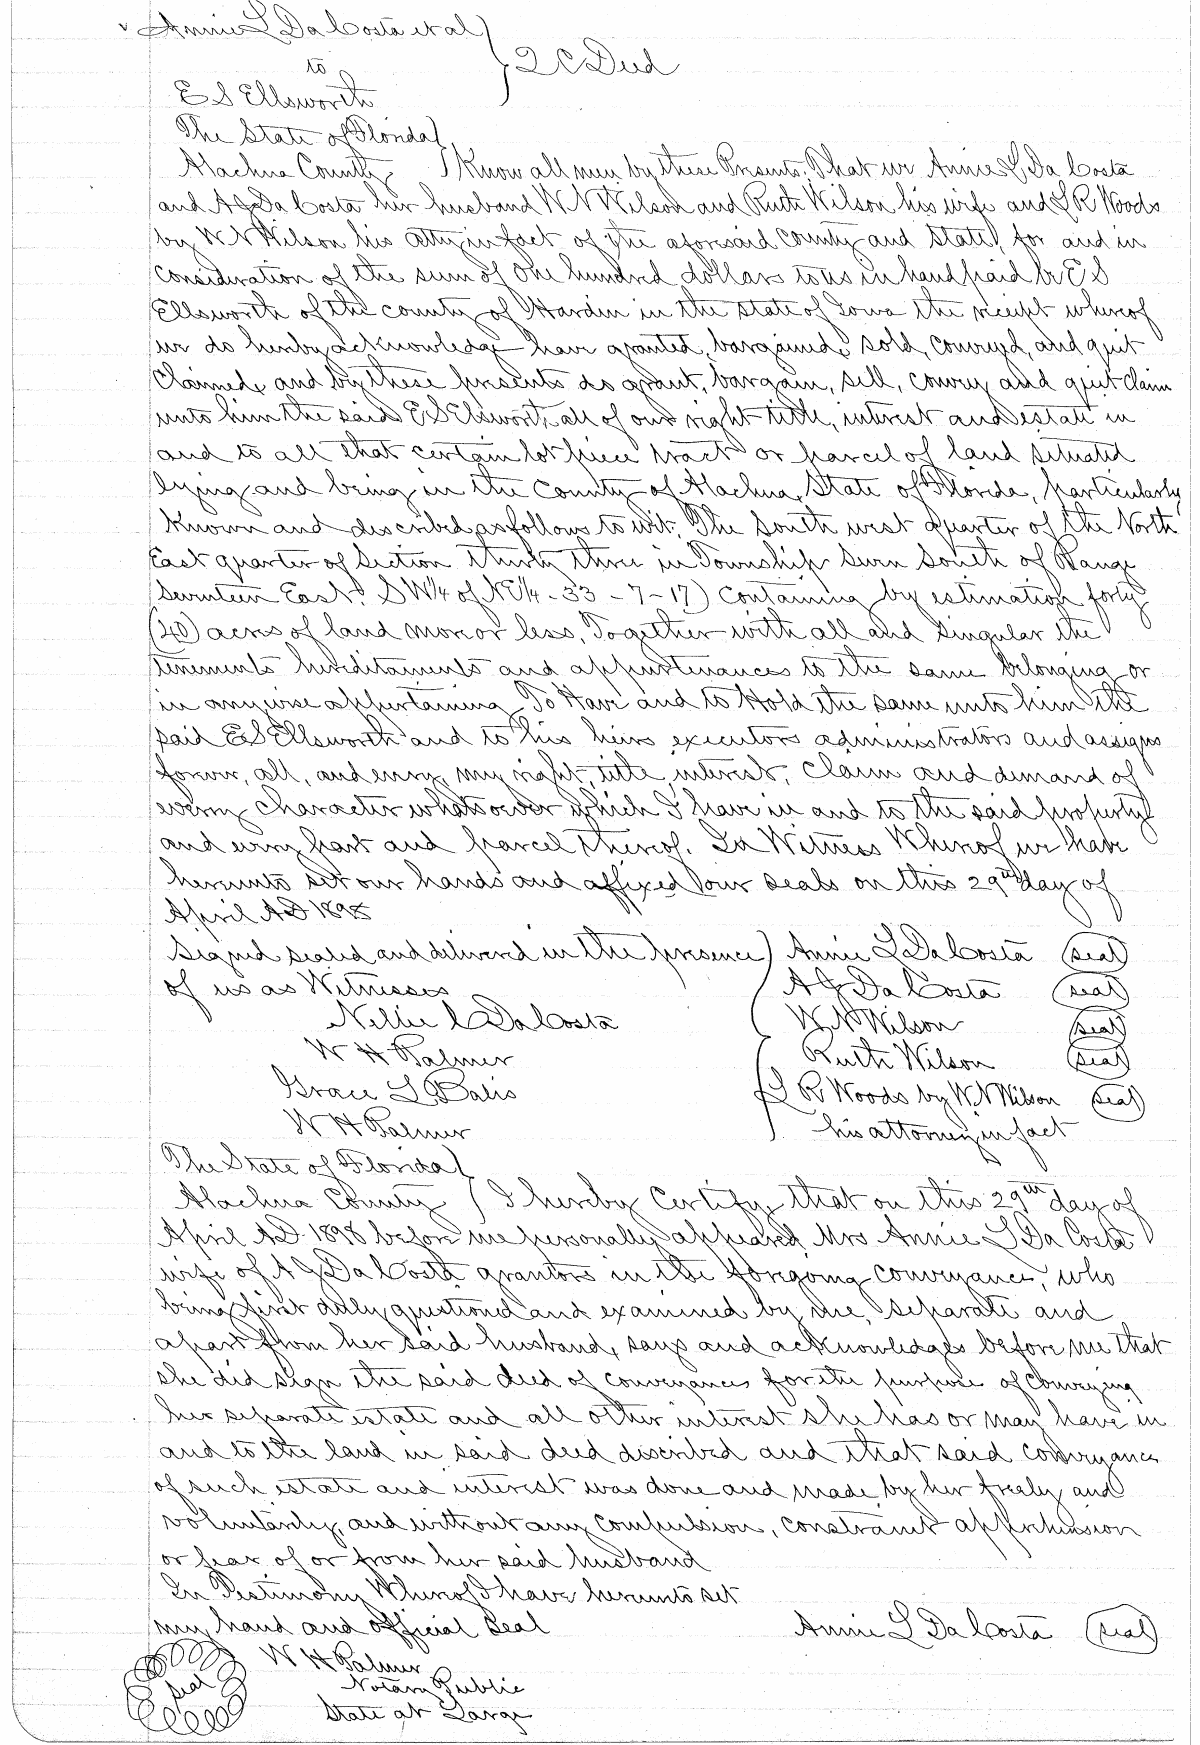 Annie L Da Costa et al
to
2 C Deed
E S Ellsworth
The State of Florida
Alachua County Know all men by these Presents, That we Annie L Da Costa
and A J Da Costa her husband W N Wilson and Ruth Wilson his wife and L R Woods
by W N Wilson his atty in fact of the aforesaid county and State, for and in
consideration of the sum of One hundred dollars to us in hand paid by E S
Ellsworth of the county of Hardin in the state of Iowa the receipt whereof
we do hereby acknowledge have granted, bargained, sold, conveyed, and quit
Claimed, and by these presents do grant, bargain, sell, convey and quit claim
unto him the said E S Elsworth, all of our right title, interest and estate in
and to all that certain lot piece tract or parcel of land situated
lying and being in the County of Alachua, State of Florida, particularly
known and described as follows to wit, The South west quarter of the North
East quarter of Section thirty three in Township Seven South of Range
Seventeen East. SW¼ of NE¼ - 33 - 7 - 17) containing by estimation forty
(40) acres of land more or less, Together with all and singular the
tenements hereditaments and appurtenances to the same belonging or
in any wise appertaining To Have and to Hold the same unto him the
said E S Ellsworth and to his heirs executors administrators and assigns
forever, all, and every, my right, title, interest, claim and demand of
every character whatsoever which I have in and to the said property
and every part and parcel thereof. In Witness Whereof we have
hereunto set our hands and affixed our seals on this 29th day of
April A D 1898
Signed sealed and delivered in the presence Annie L Da Costa (seal)
of us as Witnesses A J Da Costa (seal)
Nellie C Da Costa W N Wilson (seal)
W H Palmer Ruth Wilson (seal)
Grace L L R Woods by W N Wilson (seal)
W H Palmer his attorney in fact
The State of Florida
Alachua County I hereby Certify, that on this 29th day of
April A D 1898 before me personally appeared Mrs Annie L Da Costa
wife of A J Da Costa grantors in the foregoing conveyance, who
being first duly questioned and examined by me, separate and
apart from her said husband, says and acknowledges before me that
she did sign the said deed of conveyance for the purpose of conveying
her separate estate and all other interest she has or may have in
and to the land in said deed discribed and that said conveyance
of such estate and interest was done and made by her freely and
voluntarily, and without any compulsion, constraint apprehension
or fear of or from her said husband
In Testimony Whereof I have hereunto set
my hand and official Seal Annie L Da Costa (seal)
W H Palmer
seal Notary Public
State at Large